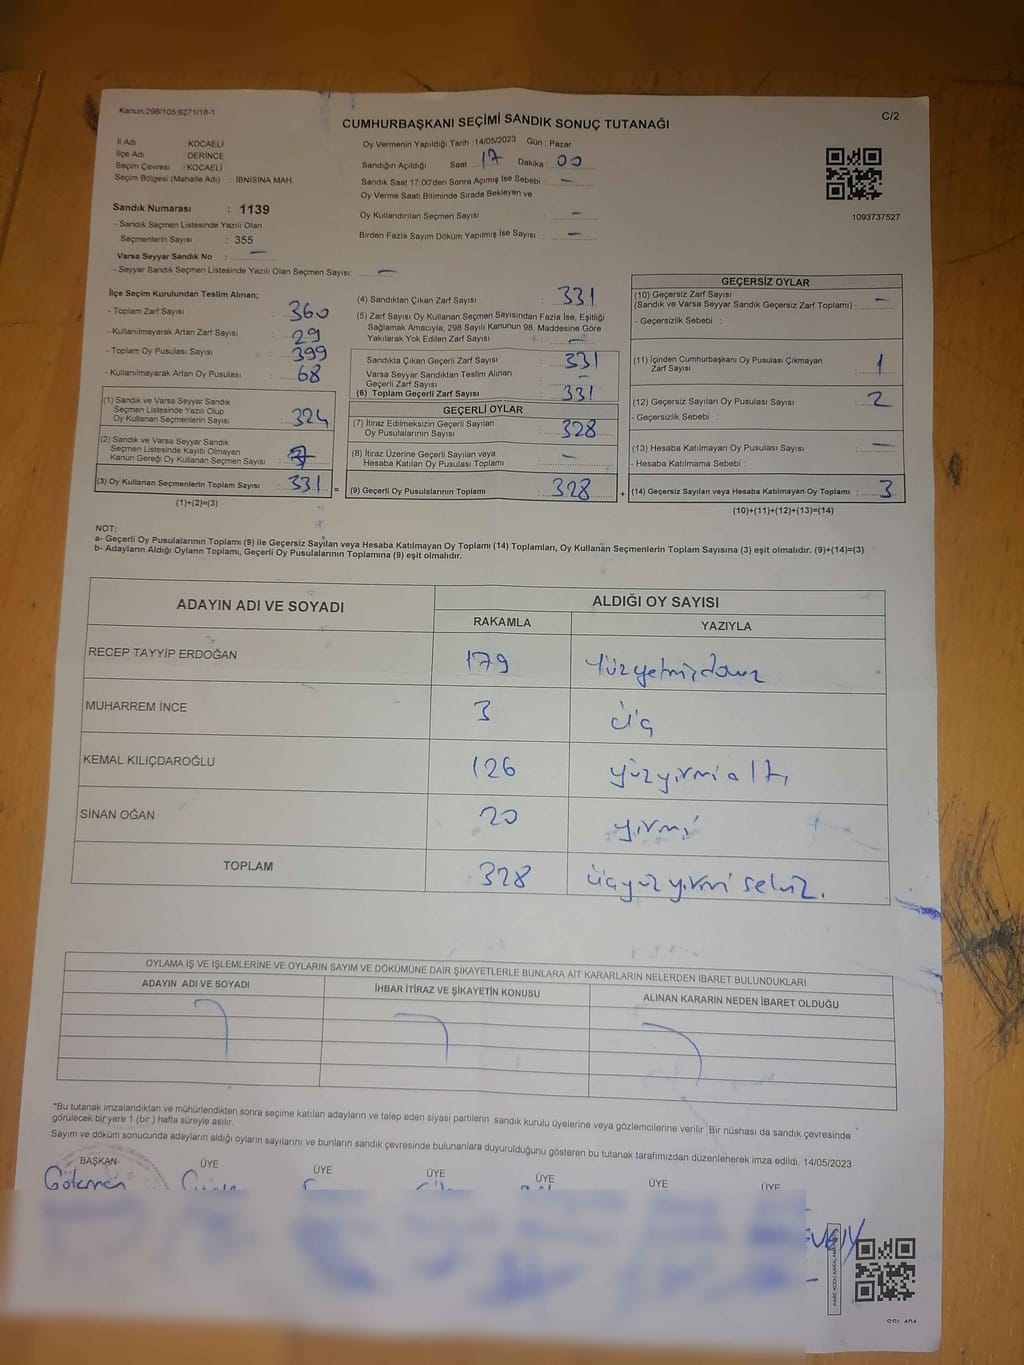 Kanun:298/105;6271/18-1
C/2
CUMHURBAŞKANI SEÇİMİ SANDIK SONUÇ TUTANAĞI
İl Adı : KOCAELİ
İlçe Adı : DERİNCE
Seçim Çevresi : KOCAELİ
Seçim Bölgesi (Mahalle Adı) : İBNİSİNA MAH.
Sandık Numarası : 1139
- Sandık Seçmen Listesinde Yazılı Olan
Seçmenlerin Sayısı : 355
Varsa Seyyar Sandık No : —
- Seyyar Sandık Seçmen Listesinde Yazılı Olan Seçmen Sayısı: —
Oy Vermenin Yapıldığı Tarih :14/05/2023 Gün : Pazar
Sandığın Açıldığı Saat : 17 Dakika : 00
Sandık Saat 17:00'den Sonra Açımış İse Sebebi : —
Oy Verme Saati Bitiminde Sırada Bekleyen ve
Oy Kullandırılan Seçmen Sayısı : —
Birden Fazla Sayım Döküm Yapılmış İse Sayısı : —
1093737527
İlçe Seçim Kurulundan Teslim Alınan;
- Toplam Zarf Sayısı : 360
- Kullanılmayarak Artan Zarf Sayısı : 29
- Toplam Oy Pusulası Sayısı : 399
- Kullanılmayarak Artan Oy Pusulası : 68
(1) Sandık ve Varsa Seyyar Sandık
Seçmen Listesinde Yazılı Olup
Oy Kullanan Seçmenlerin Sayısı : 324
(2) Sandık ve Varsa Seyyar Sandık
Seçmen Listesinde Kayıtlı Olmayan
Kanun Gereği Oy Kullanan Seçmen Sayısı : 7
(3) Oy Kullanan Seçmenlerin Toplam Sayısı : 331 =
(1)+(2)=(3)
(4) Sandıktan Çıkan Zarf Sayısı : 331
(5) Zarf Sayısı Oy Kullanan Seçmen Sayısından Fazla İse, Eşitliği
Sağlamak Amacıyla; 298 Sayılı Kanunun 98. Maddesine Göre
Yakılarak Yok Edilen Zarf Sayısı : —
Sandıkta Çıkan Geçerli Zarf Sayısı : 331
Varsa Seyyar Sandıktan Teslim Alınan
Geçerli Zarf Sayısı : —
(6) Toplam Geçerli Zarf Sayısı : 331
GEÇERLİ OYLAR
(7) İtiraz Edilmeksizin Geçerli Sayılan
Oy Pusulalarının Sayısı : 328
(8) İtiraz Üzerine Geçerli Sayılan veya
Hesaba Katılan Oy Pusulası Toplamı : —
(9) Geçerli Oy Pusulalarının Toplamı : 328 +
GEÇERSİZ OYLAR
(10) Geçersiz Zarf Sayısı
(Sandık ve Varsa Seyyar Sandık Geçersiz Zarf Toplamı) : —
- Geçersizlik Sebebi :
(11) İçinden Cumhurbaşkanı Oy Pusulası Çıkmayan
Zarf Sayısı : 1
(12) Geçersiz Sayılan Oy Pusulası Sayısı : 2
- Geçersizlik Sebebi :
(13) Hesaba Katılmayan Oy Pusulası Sayısı : —
- Hesaba Katılmama Sebebi :
(14) Geçersiz Sayılan veya Hesaba Katılmayan Oy Toplamı : 3
(10)+(11)+(12)+(13)=(14)
NOT:
a- Geçerli Oy Pusulalarının Toplamı (9) ile Geçersiz Sayılan veya Hesaba Katılmayan Oy Toplamı (14) Toplamları, Oy Kullanan Seçmenlerin Toplam Sayısına (3) eşit olmalıdır. (9)+(14)=(3)
b- Adayların Aldığı Oyların Toplamı, Geçerli Oy Pusulalarının Toplamına (9) eşit olmalıdır.
ADAYIN ADI VE SOYADI ALDIĞI OY SAYISI
RAKAMLA YAZIYLA
RECEP TAYYİP ERDOĞAN 179 Yüzyetmişdokuz
MUHARREM İNCE 3 üç
KEMAL KILIÇDAROĞLU 126 yüzyirmialtı
SİNAN OĞAN 20 yirmi
TOPLAM 328 üçyüzyirmisekiz.
OYLAMA İŞ VE İŞLEMLERİNE VE OYLARIN SAYIM VE DÖKÜMÜNE DAİR ŞİKAYETLERLE BUNLARA AİT KARARLARIN NELERDEN İBARET BULUNDUKLARI
ADAYIN ADI VE SOYADI İHBAR İTİRAZ VE ŞİKAYETİN KONUSU ALINAN KARARIN NEDEN İBARET OLDUĞU
*Bu tutanak imzalandıktan ve mühürlendikten sonra seçime katılan adayların ve talep eden siyasi partilerin sandık kurulu üyelerine veya gözlemcilerine verilir .Bir nüshası da sandık çevresinde
görülecek bir yere 1 (bir ) hafta süreyle asılır.
Sayım ve döküm sonucunda adayların aldığı oyların sayılarını ve bunların sandık çevresinde bulunanlara duyurulduğunu gösteren bu tutanak tarafımızdan düzenlenerek imza edildi. 14/05/2023
BAŞKAN ÜYE ÜYE ÜYE ÜYE ÜYE ÜYE
Gökmen